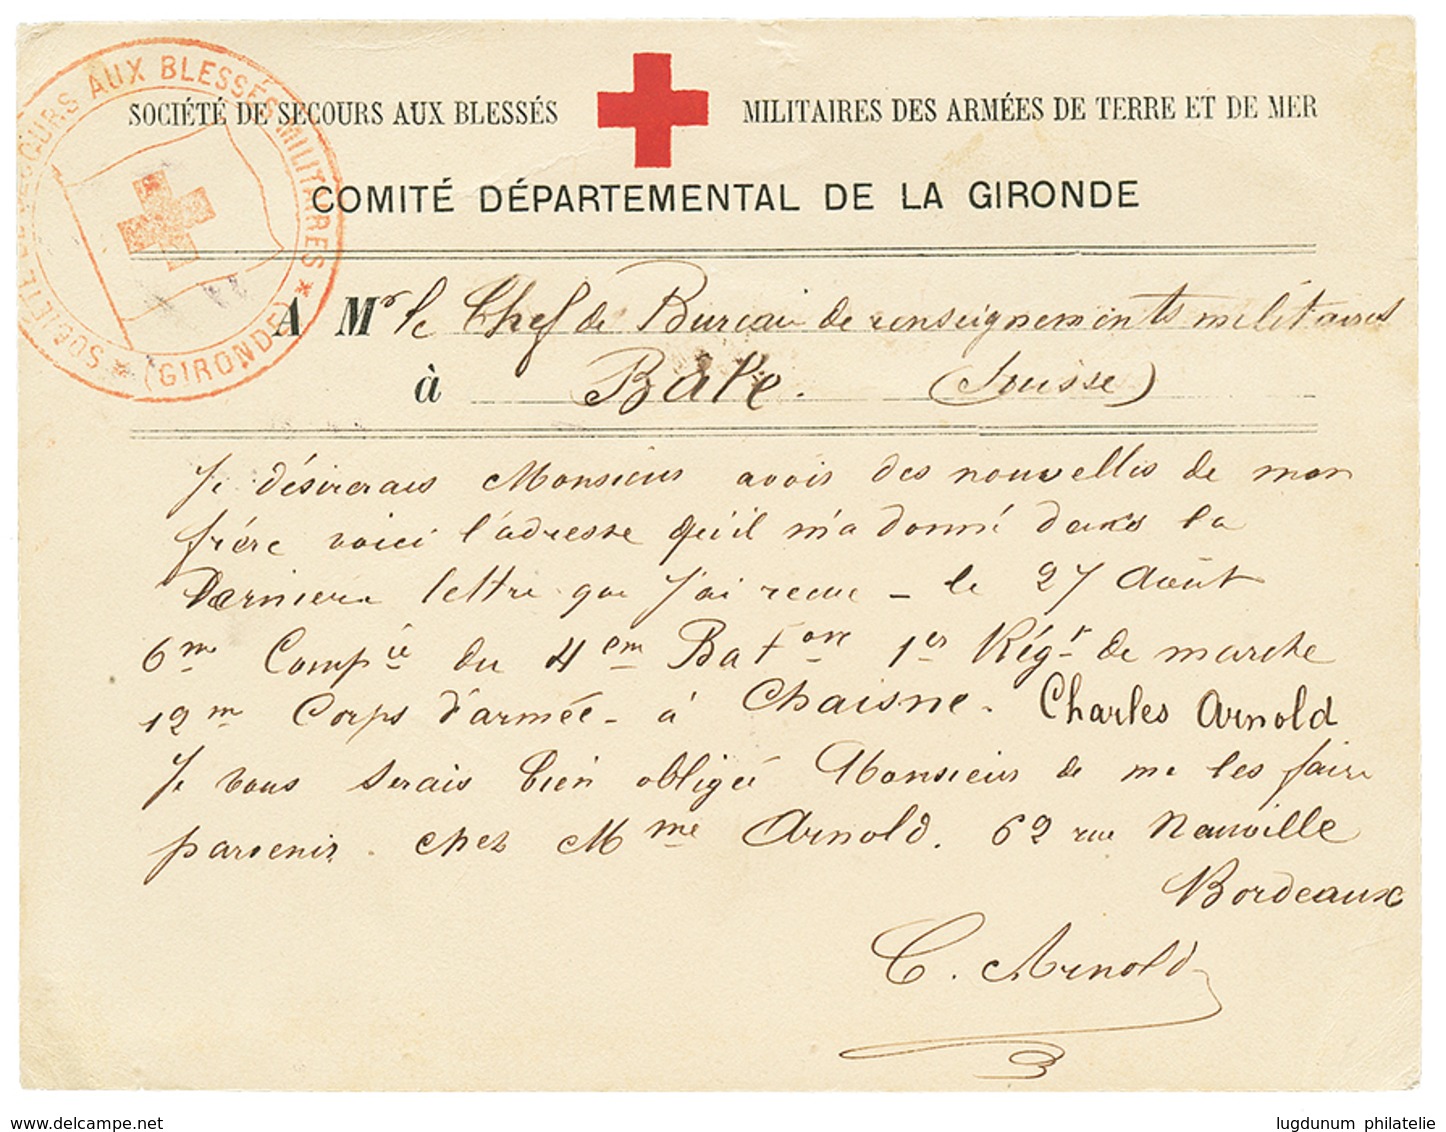 SOCIÉTÉ DE SECOURS AUX BLESSÉS MILITAIRES * (GIRONDE) *
SOCIÉTÉ DE SECOURS AUX BLESSÉS MILITAIRES DES ARMÉES DE TERRE ET DE MER
COMITÉ DÉPARTEMENTAL DE LA GIRONDE
A Mr le Chef de Bureau de renseignements militaires
à Bâle. (Suisse)
Je désirerais Monsieur avoir des nouvelles de mon
frére voici l'adresse qu'il m'a donné dans la
Derniere lettre que j'ai recue – le 27 Août
6me Compie du 4em Baton 1er Régt de marche
12me Corps d'armée – à Chaisne. Charles Arnold
Je vous serais bien obligée Monsieur de me les faire
parvenir. chez Mme Arnold. 62 rue Neuville
Bordeaux
C. Arnold
www.delcampe.net
lugdunum philatelie